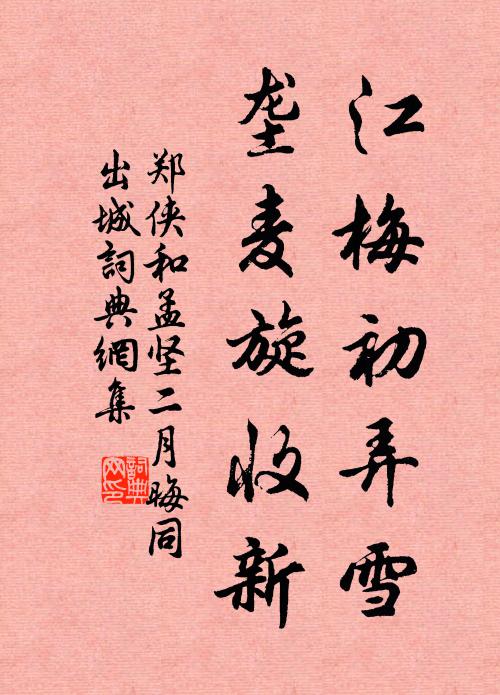 江梅初弄雪
垄麦旋收新
郑侠和孟坚二月晦同
出城詞典網集
詞典
网印